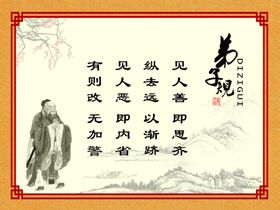 弟子规
DIZIGUI
见人善 即思齐
纵去远 以渐跻
见人恶 即内省
有则改 无加警